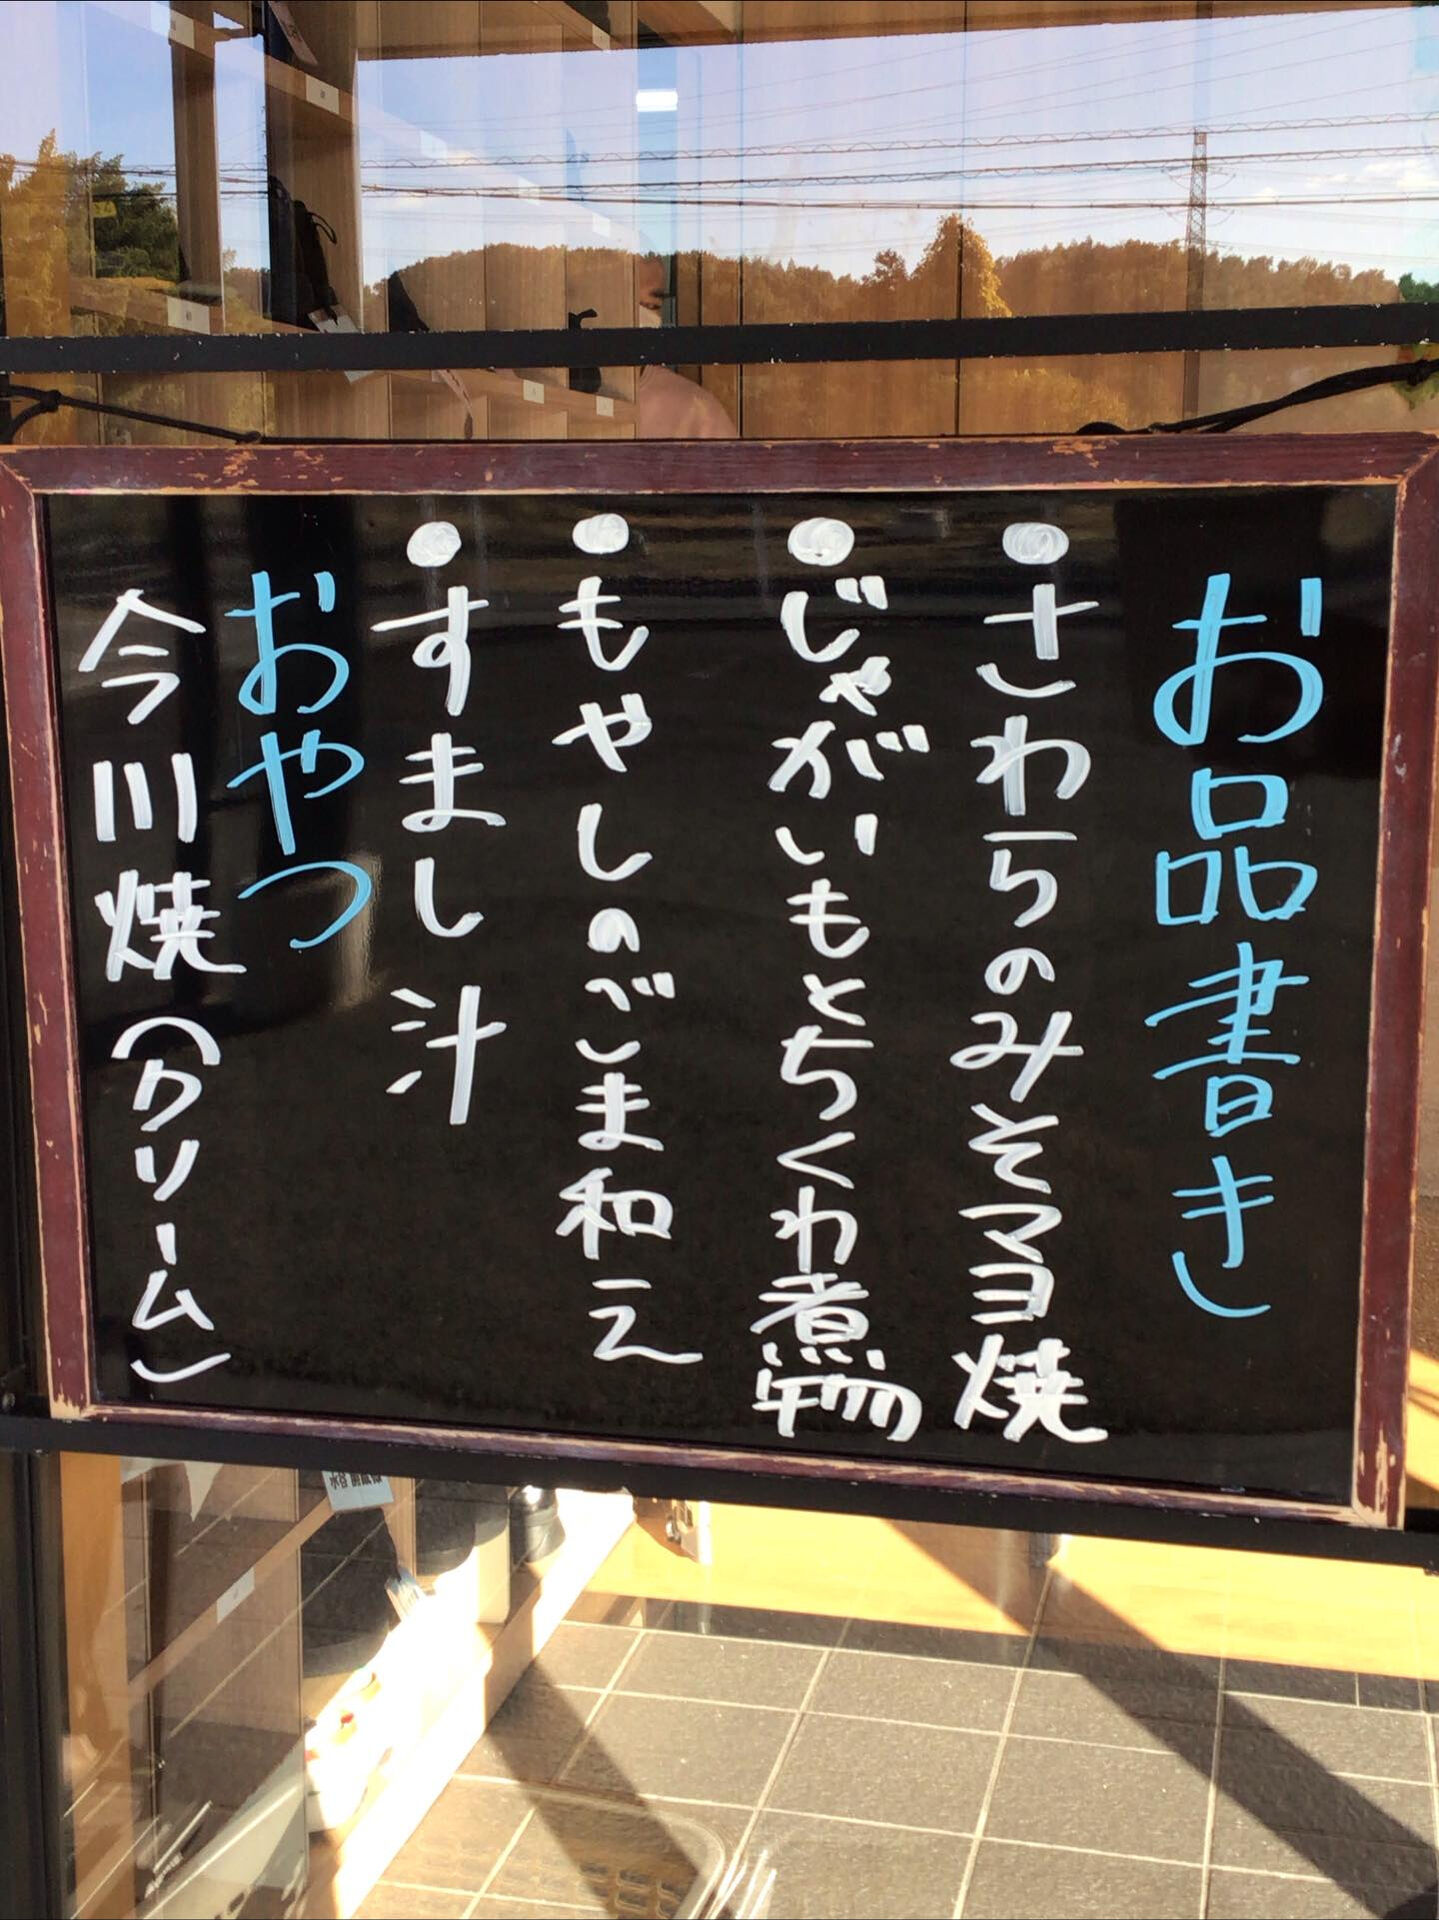 お品書き
●さわらのみそマヨ焼
●じゃがいもとちくわ煮物
●もやしのごま和え
●すまし汁
おやつ
今川焼（クリーム）